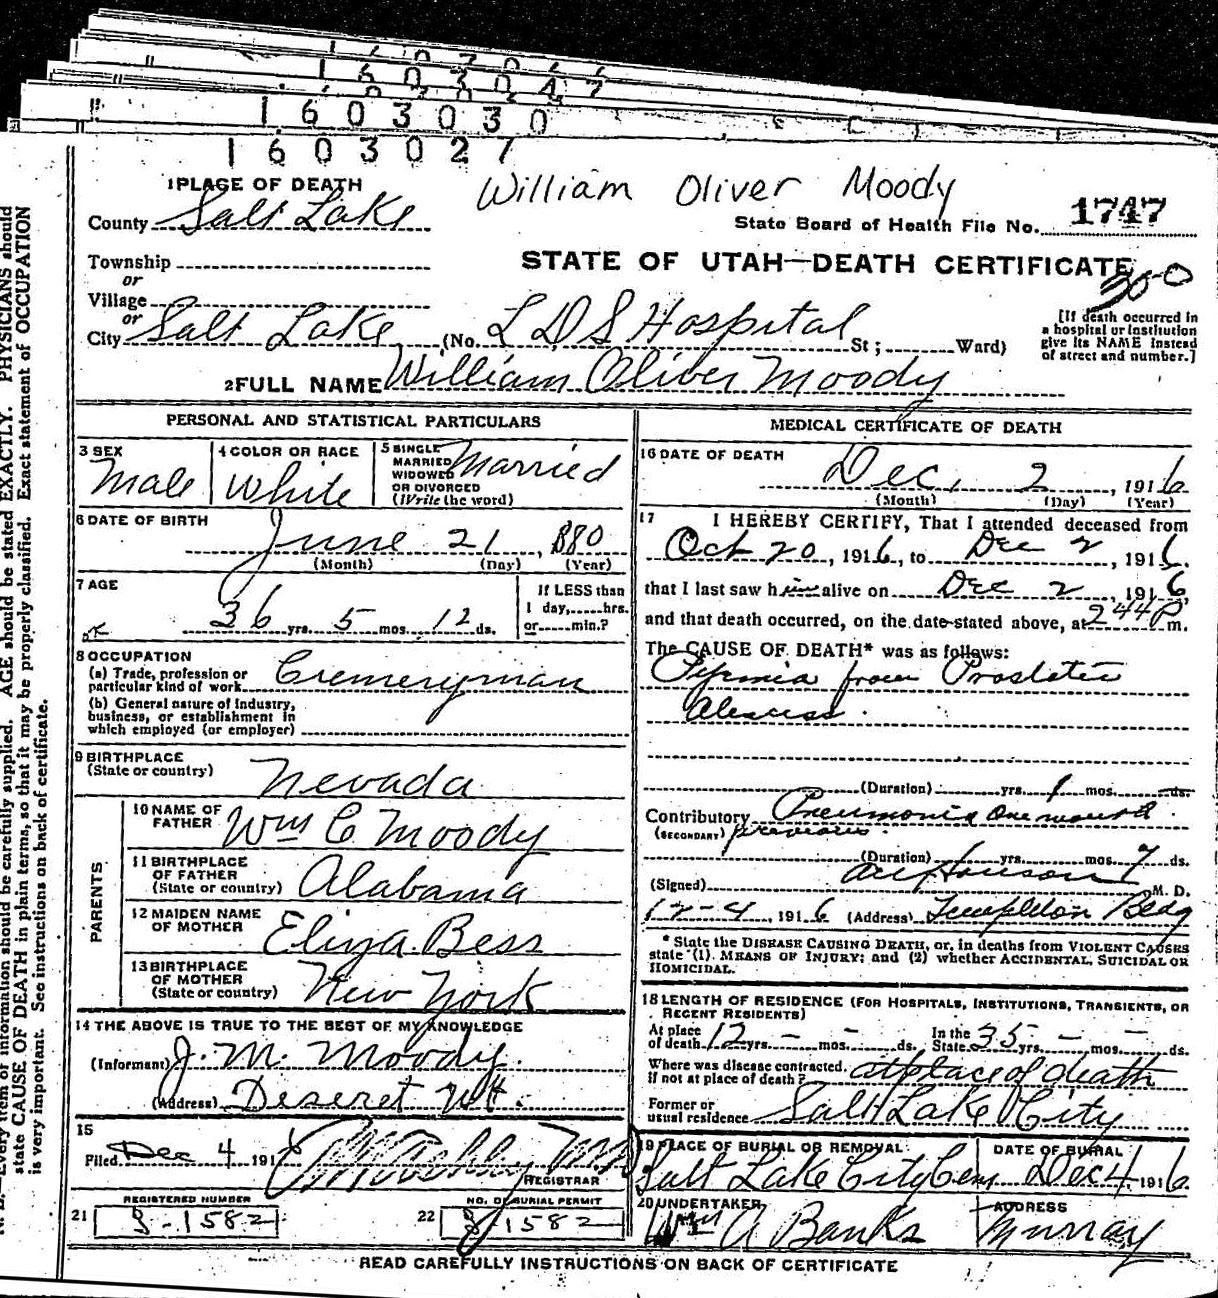 1603047
1603030
1603027
William Oliver Moody
1 PLACE OF DEATH
County Salt Lake
State Board of Health File No. 1747
STATE OF UTAH—DEATH CERTIFICATE
Township
or
Village
or
City Salt Lake (No. L D S Hospital St; Ward)
[If death occurred in a hospital or institution give its NAME instead of street and number.]
2 FULL NAME William Oliver Moody
PERSONAL AND STATISTICAL PARTICULARS
3 SEX
Male
4 COLOR OR RACE
White
5 SINGLE
MARRIED
WIDOWED
OR DIVORCED
(Write the word)
Married
6 DATE OF BIRTH
June 21, 1880
(Month) (Day) (Year)
7 AGE
36 yrs. 5 mos. 12 ds.
If LESS than
1 day, hrs.
or min.?
8 OCCUPATION
(a) Trade, profession or
particular kind of work Cremeryman
(b) General nature of Industry,
business, or establishment in
which employed (or employer)
9 BIRTHPLACE
(State or country) Nevada
PARENTS
10 NAME OF
FATHER Wm C Moody
11 BIRTHPLACE
OF FATHER
(State or country) Alabama
12 MAIDEN NAME
OF MOTHER Eliza Bess
13 BIRTHPLACE
OF MOTHER
(State or country) New York
14 THE ABOVE IS TRUE TO THE BEST OF MY KNOWLEDGE
(Informant) J. M. Moody
(Address) Deseret Ut.
15
Filed Dec 4 191
REGISTRAR
REGISTERED NUMBER
21 8-1582
NO. OF BURIAL PERMIT
22 8-1582
MEDICAL CERTIFICATE OF DEATH
16 DATE OF DEATH
Dec. 2, 1916
(Month) (Day) (Year)
17 I HEREBY CERTIFY, That I attended deceased from
Oct 20, 1916, to Dec 2, 1916,
that I last saw him alive on Dec 2, 1916,
and that death occurred, on the date stated above, at 2 44 P m.
The CAUSE OF DEATH* was as follows:
Pyemia from Prostatic
Abscess.
(Duration) yrs. 1 mos. ds.
Contributory Pneumonia one month
(SECONDARY) previous.
(Duration) yrs. mos. 7 ds.
(Signed) M. D.
12-4, 1916 (Address) Templeton Bldg
* State the DISEASE CAUSING DEATH, or, in deaths from VIOLENT CAUSES
state (1) MEANS OF INJURY; and (2) whether ACCIDENTAL, SUICIDAL OR
HOMICIDAL.
18 LENGTH OF RESIDENCE (FOR HOSPITALS, INSTITUTIONS, TRANSIENTS, OR
RECENT RESIDENTS)
At place
of death 12 yrs. - mos. - ds. In the
State 35 yrs. - mos. - ds.
Where was disease contracted,
if not at place of death? at place of death
Former or
usual residence Salt Lake City
19 PLACE OF BURIAL OR REMOVAL
Salt Lake City Cem
DATE OF BURIAL
Dec 4, 1916
20 UNDERTAKER
Wm A Banks
ADDRESS
Murray
READ CAREFULLY INSTRUCTIONS ON BACK OF CERTIFICATE
N. B.—Every item of information should be carefully supplied. AGE should be stated EXACTLY. PHYSICIANS should
state CAUSE OF DEATH in plain terms, so that it may be properly classified. Exact statement of OCCUPATION
is very important. See instructions on back of certificate.